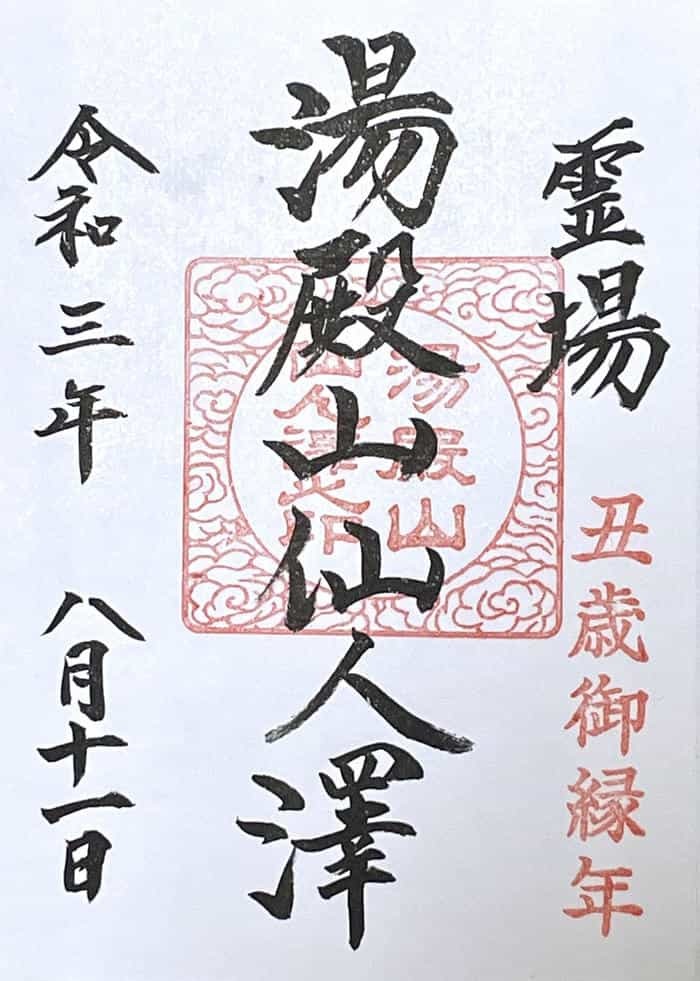 霊場
丑歳御縁年
湯殿山仙人澤
湯殿山
仙人澤之印
令和三年
八月十一日